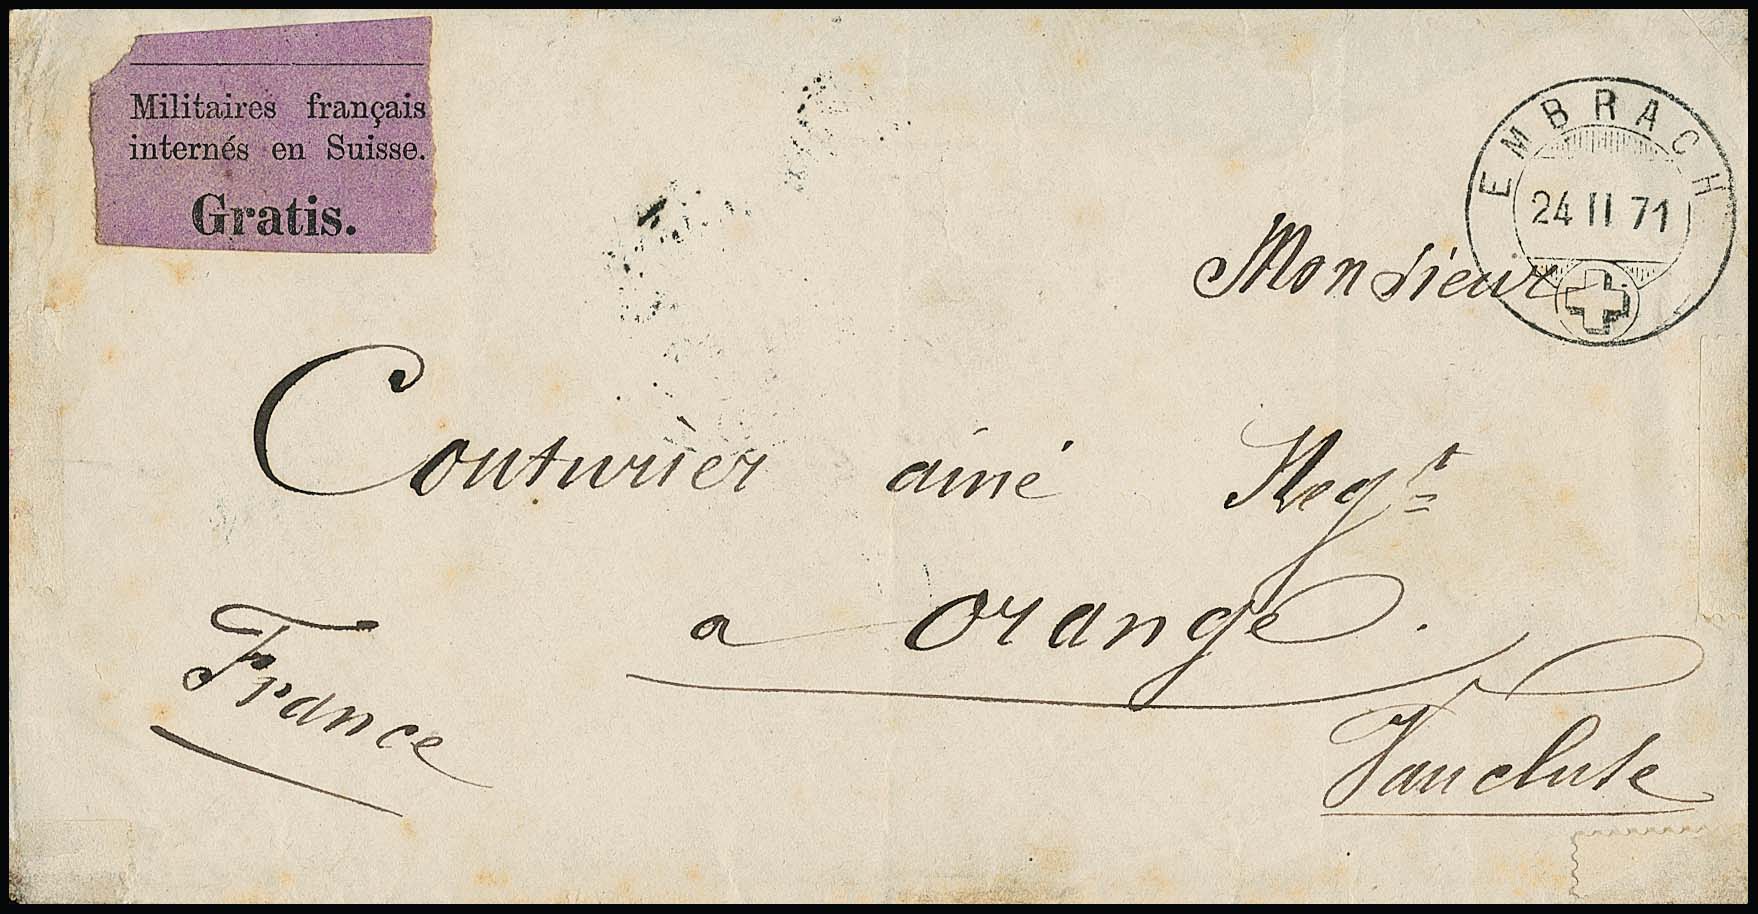 Militaires français
internés en Suisse.
Gratis.
EMBRACH
24 II 71
Monsieur
Couturier ainé Negt
a orange.
France
Vaucluse